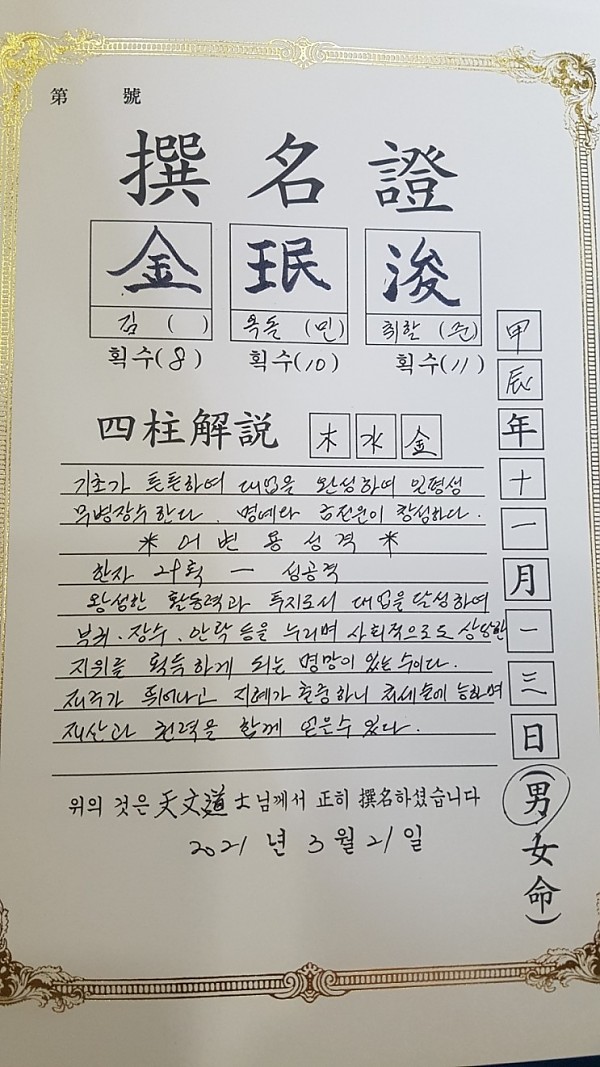 第 號
撰名證
金 珉 浚
김 ( ) 옥돌 (민) 취할 (준)
획수(8) 획수(10) 획수(11)
四柱解説 木 水 金
기초가 튼튼하여 대업을 완성하여 일평생
무병장수한다. 명예와 금전운이 창성하다.
* 어 변 용 성 격 *
한자 29획 - 성공격
왕성한 활동력과 투지로서 대업을 달성하여
부귀. 장수. 안락 등을 누리며 사회적으로도 상당한
지위를 획득하게 되는 명망이 있는 수이다.
재주가 뛰어나고 지혜가 출중하니 처세술에 능하며
재산과 권력을 함께 얻을수 있다.
위의 것은 天文道士님께서 正히 撰名하셨습니다
2021 년 3 월 21 일
甲辰年十一月一三日(男女命)